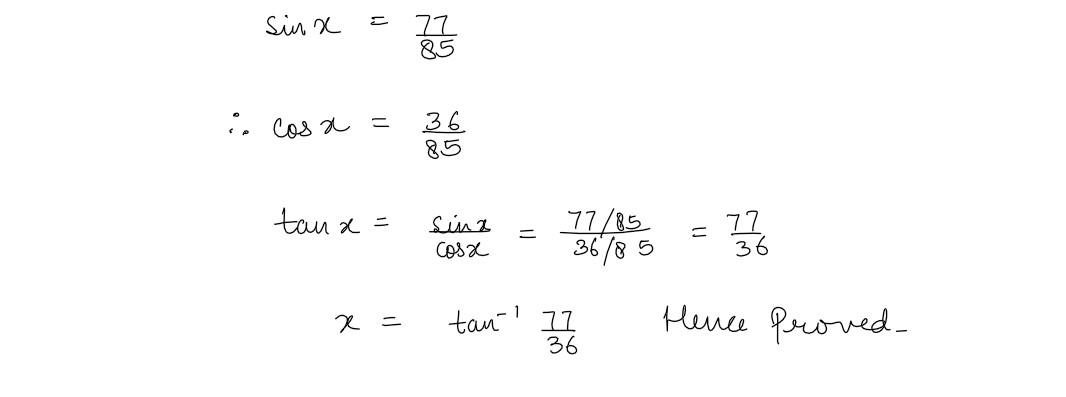 sin x = 77/85
∴ cos x = 36/85
tan x = sin x/cos x = 77/85/36/85 = 77/36
x = tan⁻¹ 77/36 Hence Proved-